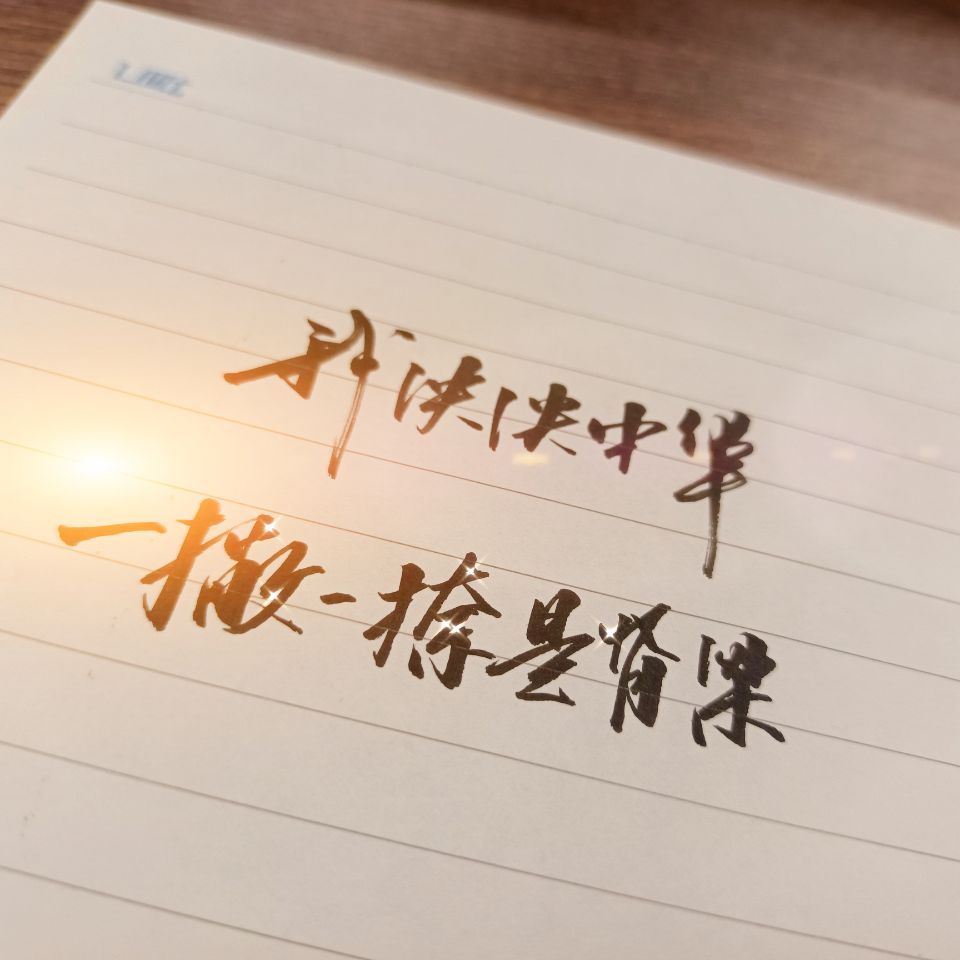 我泱泱中华
一撇一捺是脊梁